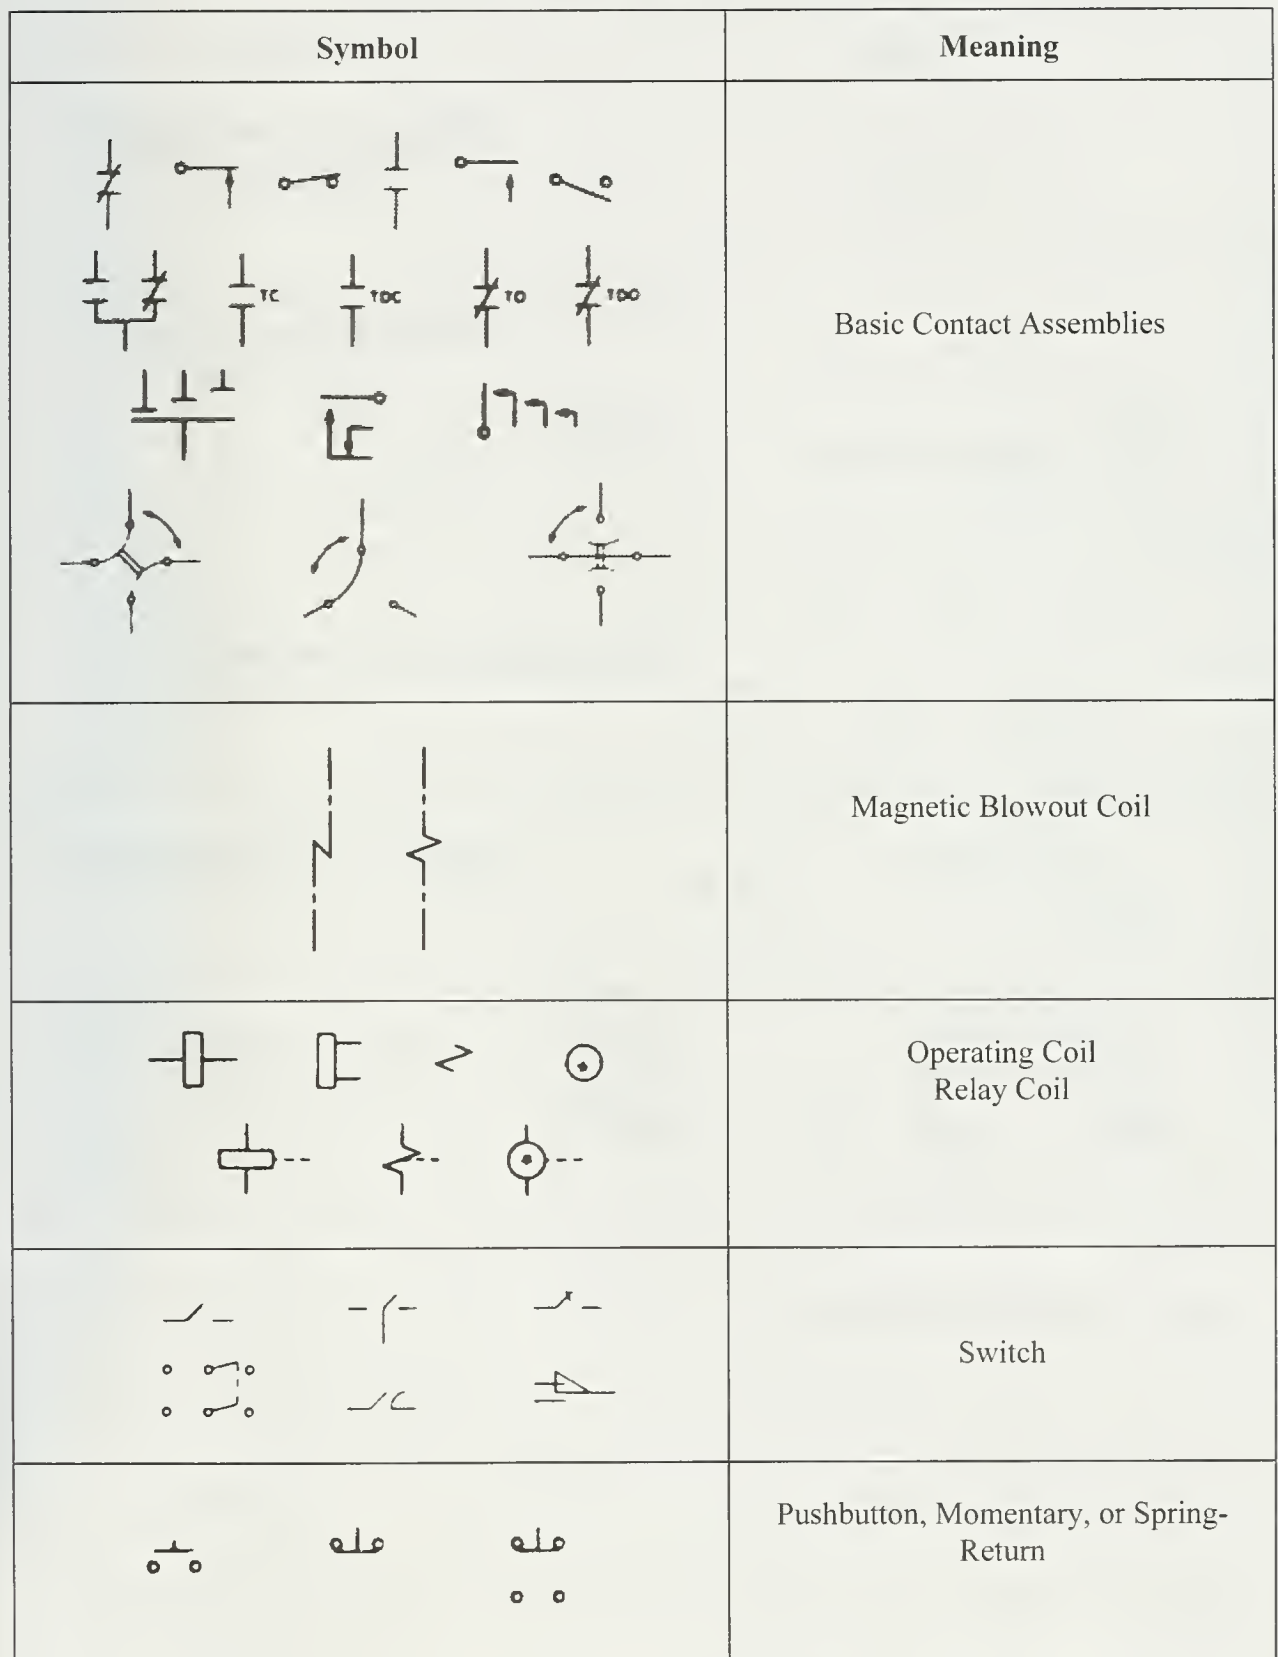 Symbol Meaning
TC TDC TO TDO
Basic Contact Assemblies
Magnetic Blowout Coil
Operating Coil
Relay Coil
Switch
Pushbutton, Momentary, or Spring-
Return